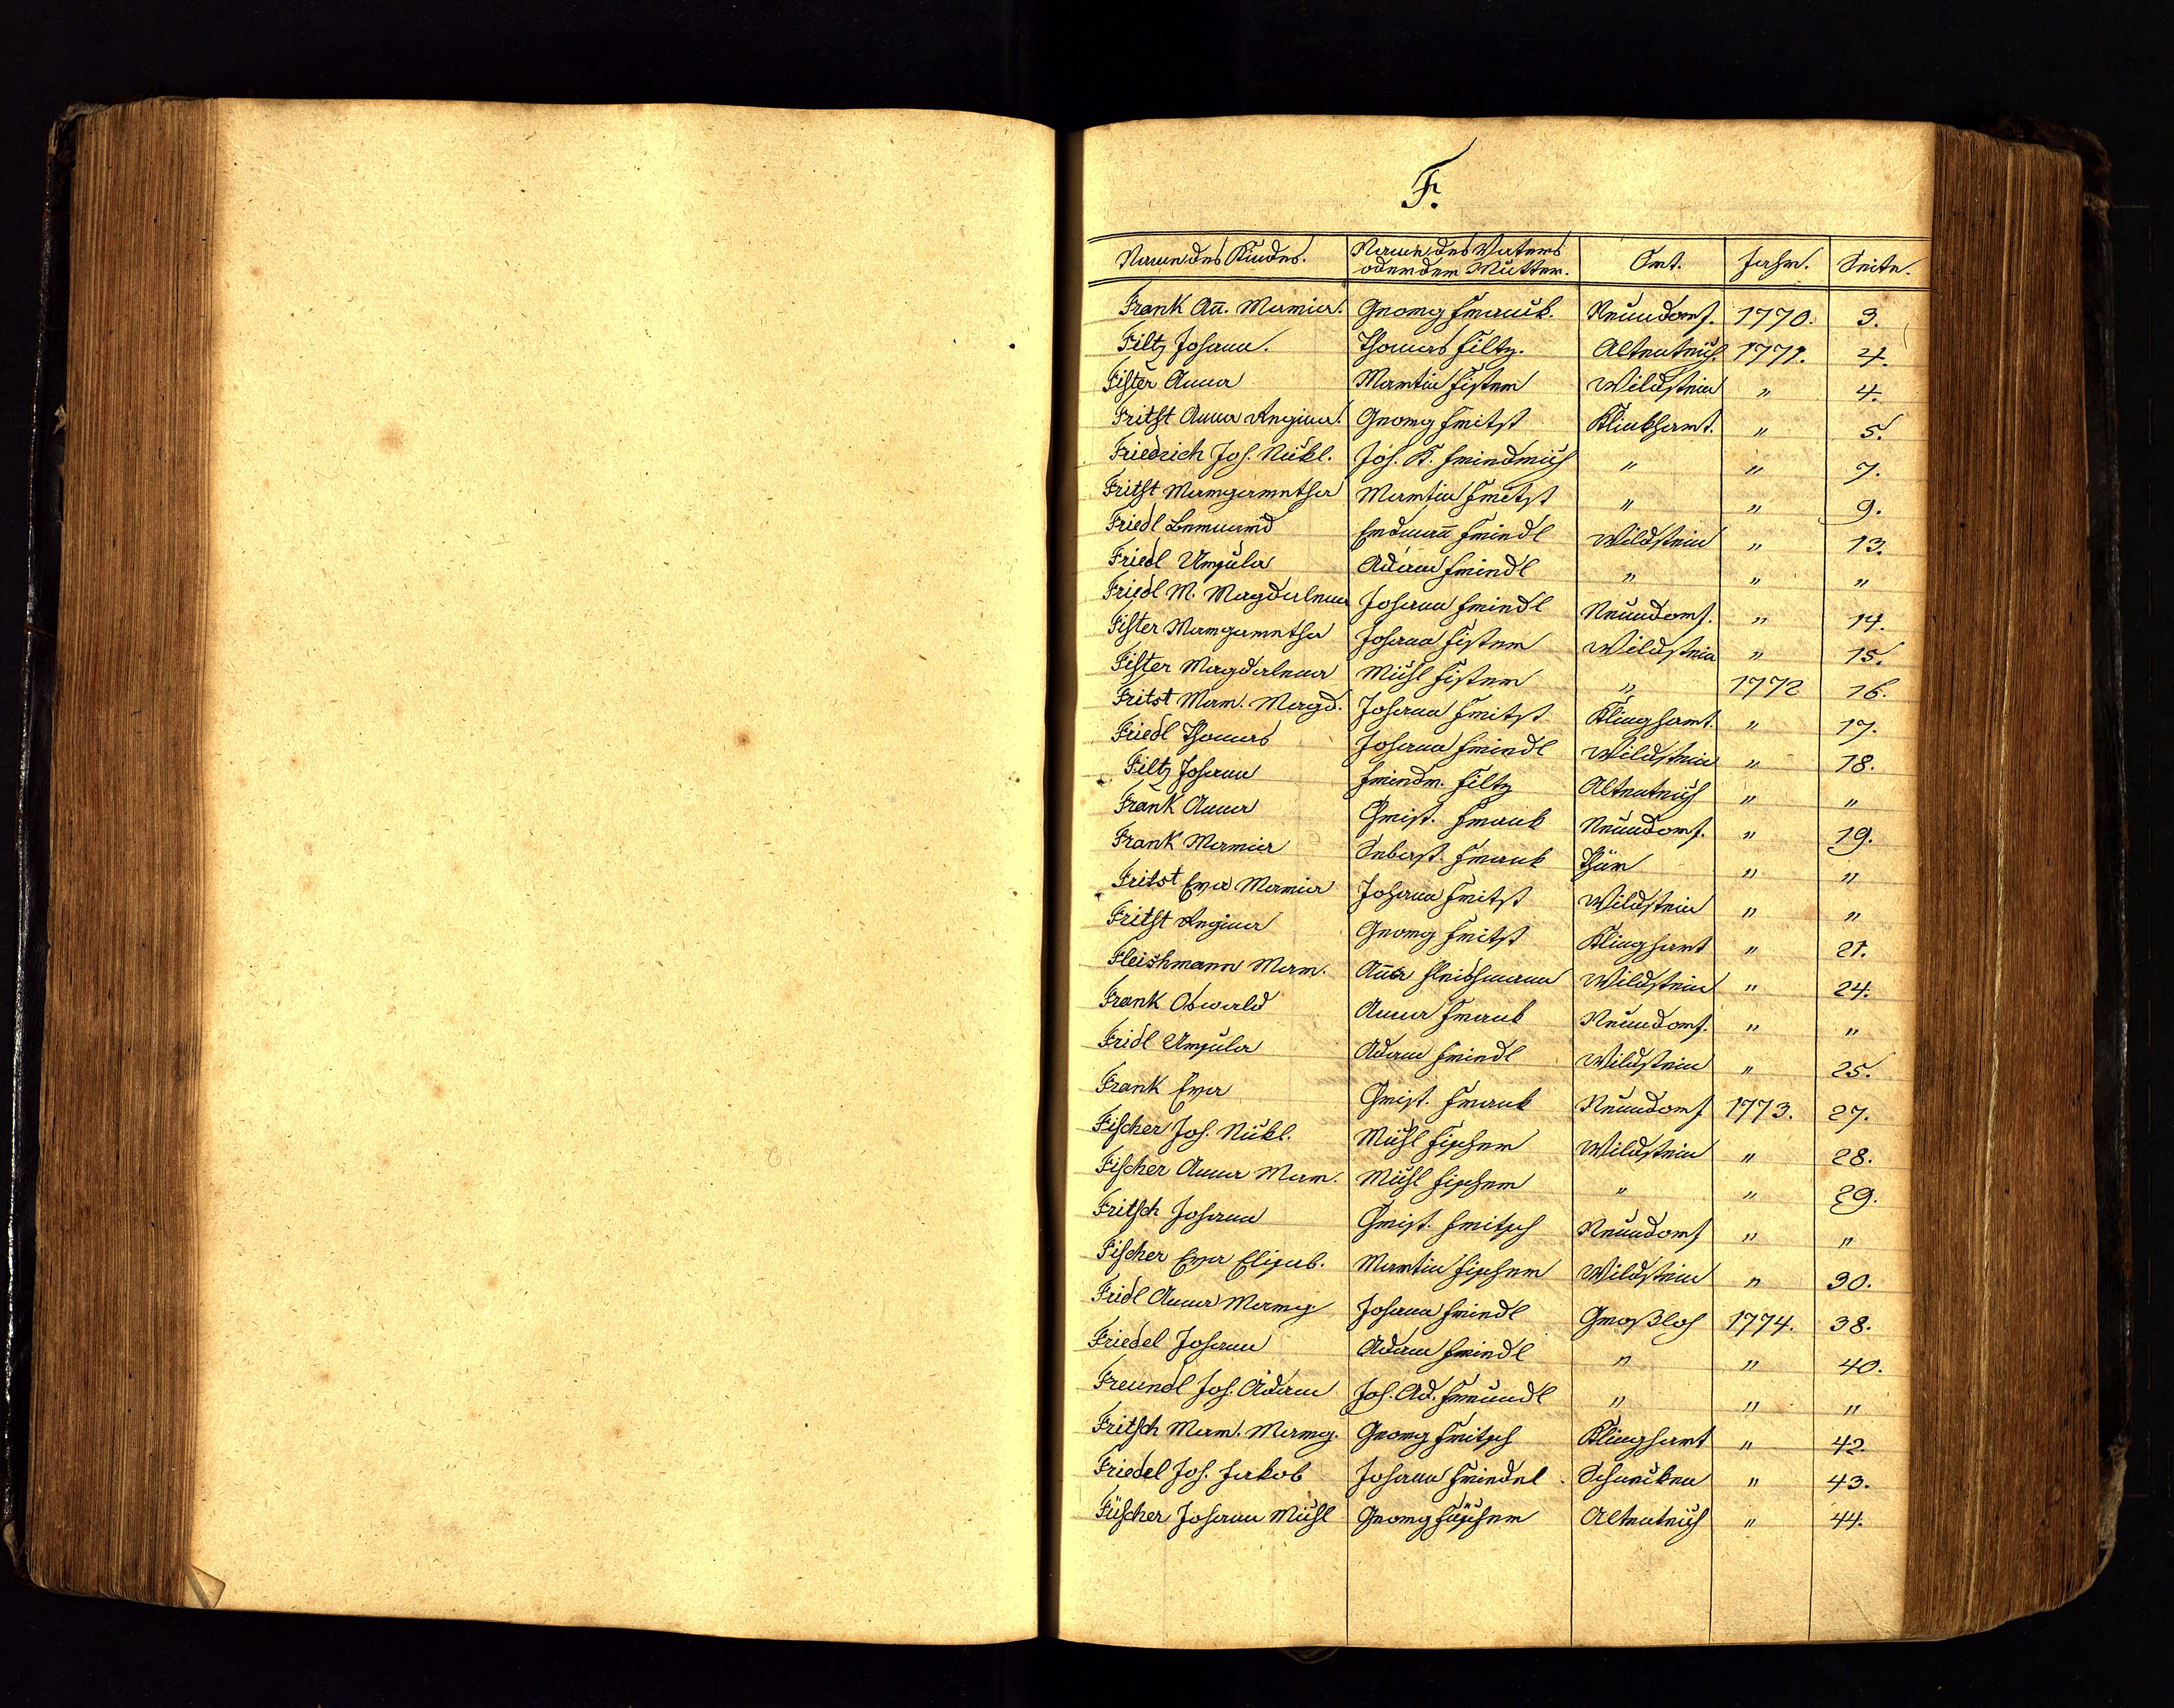 F.
Name des Kindes. Name des Vaters oder der Mutter. Ort. Jahr. Seite.
Frank Añ. Maria. Georg Frank. Neuendorf. 1770. 3.
Filtz Johann. Thomas Filtz. Altenteich. 1771. 4.
Fister Anna Martin Fister Wildstein " 4.
Fritst Anna Regina. Georg Fritst Klinkhart. " 5.
Friedrich Joh. Nikl. Joh. K. Friedrich " " 7.
Fritst Margaretha Martin Fritst " " 9.
Friedl Bernard Erdmañ Friedl Wildstein " 13.
Friedl Ursula Adam Friedl " " "
Friedl M. Magdalena Johann Friedl Neuendorf. " 14.
Fister Margaretha Johann Fister Wildstein " 15.
Fister Magdalena Michl Fister " 1772 16.
Fritst Mar. Magd. Johann Fritst Klinghart. " 17.
Friedl Thomas Johann Friedl Wildstein " 18.
Filtz Johann Friedr. Filtz Altenteich " "
Frank Anna Christ. Frank Neuendorf. " 19.
Frank Maria Sebast. Frank Thür " "
Fritst Eva Maria Johann Fritst Wildstein " "
Fritst Regina Georg Fritst Klinghart " 21.
Fleishmann Mar. Aña Fleishmann Wildstein " 24.
Frank Oswald Anna Frank Neuendorf. " "
Fridl Ursula Adam Friedl Wildstein " 25.
Frank Eva Christ. Frank Neuendorf 1773. 27.
Fischer Joh. Nikl. Michl Fischer Wildstein " 28.
Fischer Anna Mar. Michl Fischer " " 29.
Fritsch Johann Christ. Fritsch Neuendorf " "
Fischer Eva Elisab. Martin Fischer Wildstein " 30.
Fridl Anna Marg. Johann Friedl Großloh 1774. 38.
Friedel Johann Adam Friedl " " 40.
Freundl Joh. Adam Joh. Ad. Freundl " " "
Fritsch Mar. Marg. Georg Fritsch Klinghart " 42.
Friedel Joh. Jakob Johann Friedel Schneiken " 43.
Füscher Johann Michl Georg Füscher Altenteich " 44.